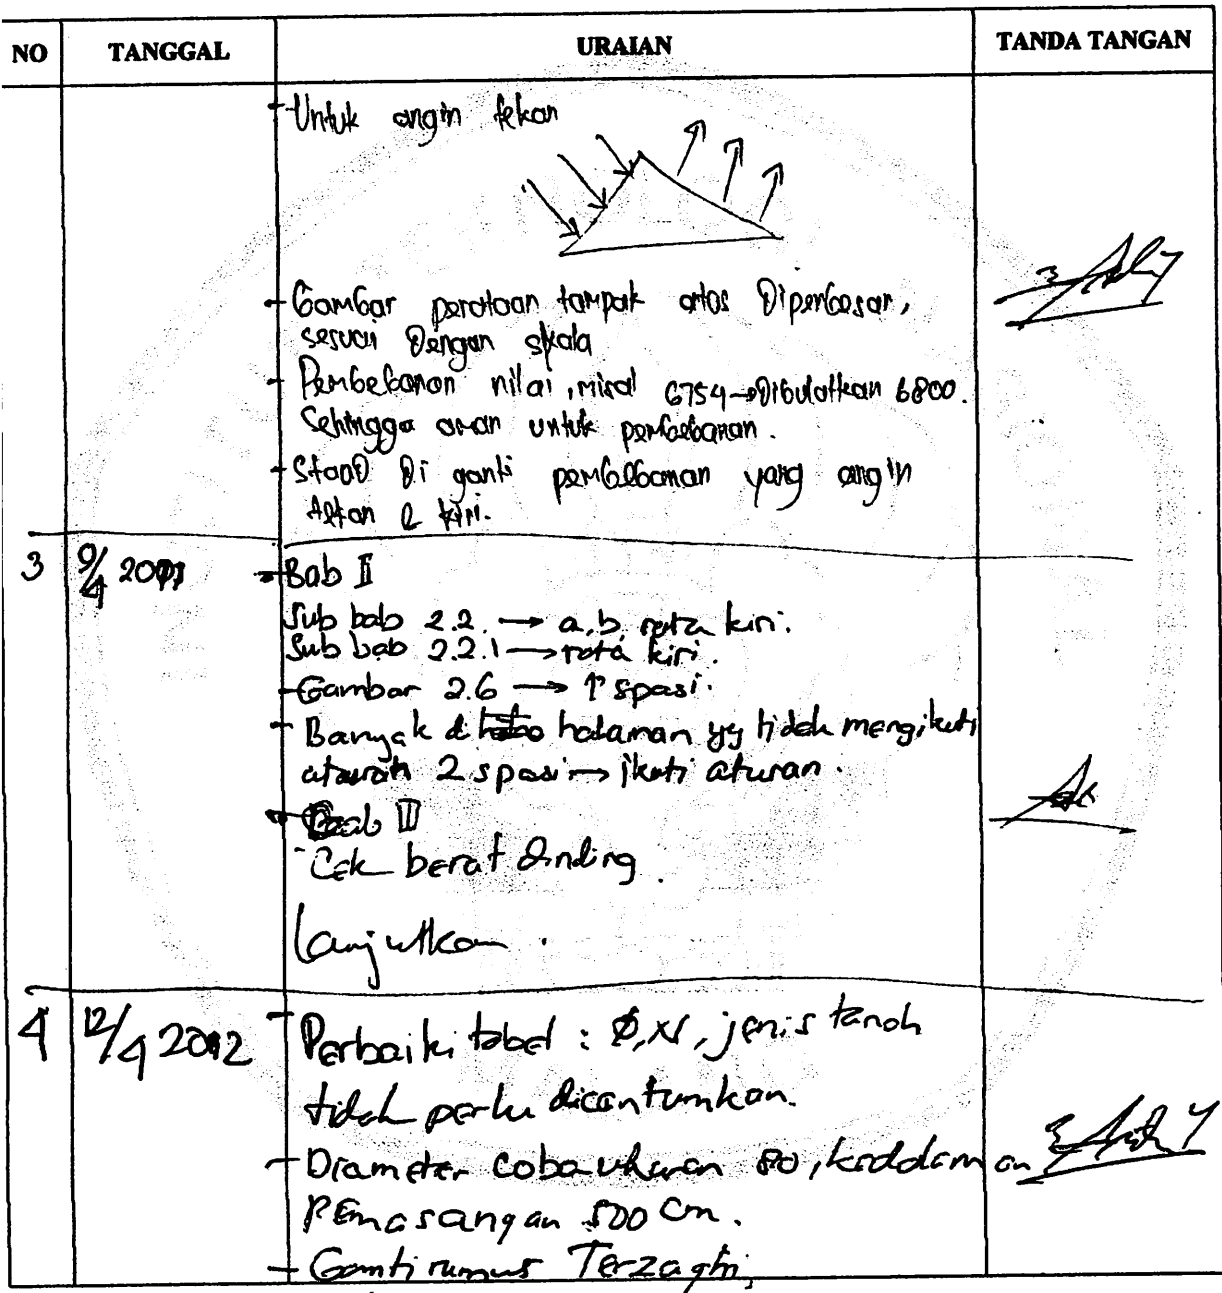 NO TANGGAL URAIAN TANDA TANGAN
- Untuk angin tekan
- Gambar perataan tampak atas Diperbesar,
sesuai Dengan skala
- Pembebanan nilai, misal 6754 → Dibulatkan 6800.
Sehingga aman untuk pembebanan.
- Staad Di ganti pembebanan yang angin
& kiri.
3 9/4 2012 - Bab II
Sub bab 2.2. → a, b, rata kiri.
Sub bab 2.2.1 → rata kiri.
- Gambar 2.6 → 1 spasi.
- Banyak di halaman yg tidak mengikuti
aturan 2 spasi → ikuti aturan.
- Bab III
- Cek berat dinding.
Lanjutkan.
4 12/4 2012 - Perbaiki tabel : Ø, jenis tanah
tidak perlu dicantumkan.
- Diameter coba ukuran 80, kedalaman
pemasangan 500 cm.
- Ganti rumus Terzaghi,